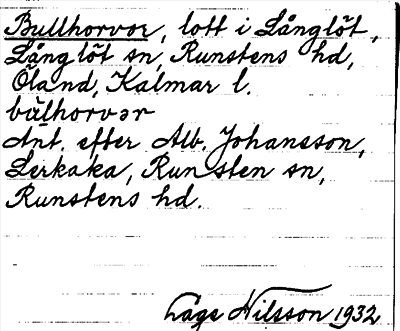 Bullhorvor, lott i Långlöt,
Långlöt sn, Runstens hd,
Öland, Kalmar l.
bǔlhorvər
Ant. efter Alb. Johansson,
Lerkaka, Runsten sn,
Runstens hd.
Låge Nilsson 1932